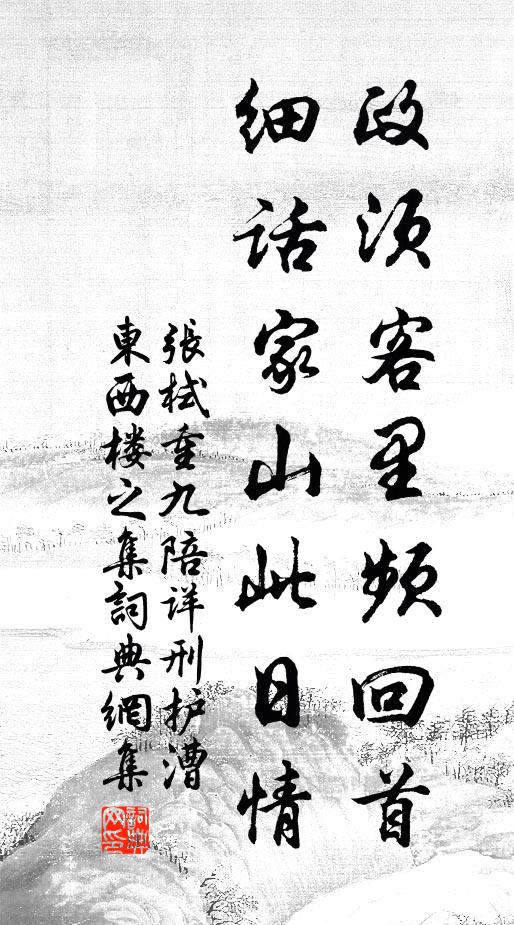 政须客里频回首
细话家山此日情
張栻重九陪详刑护漕
東西楼之集詞典網集